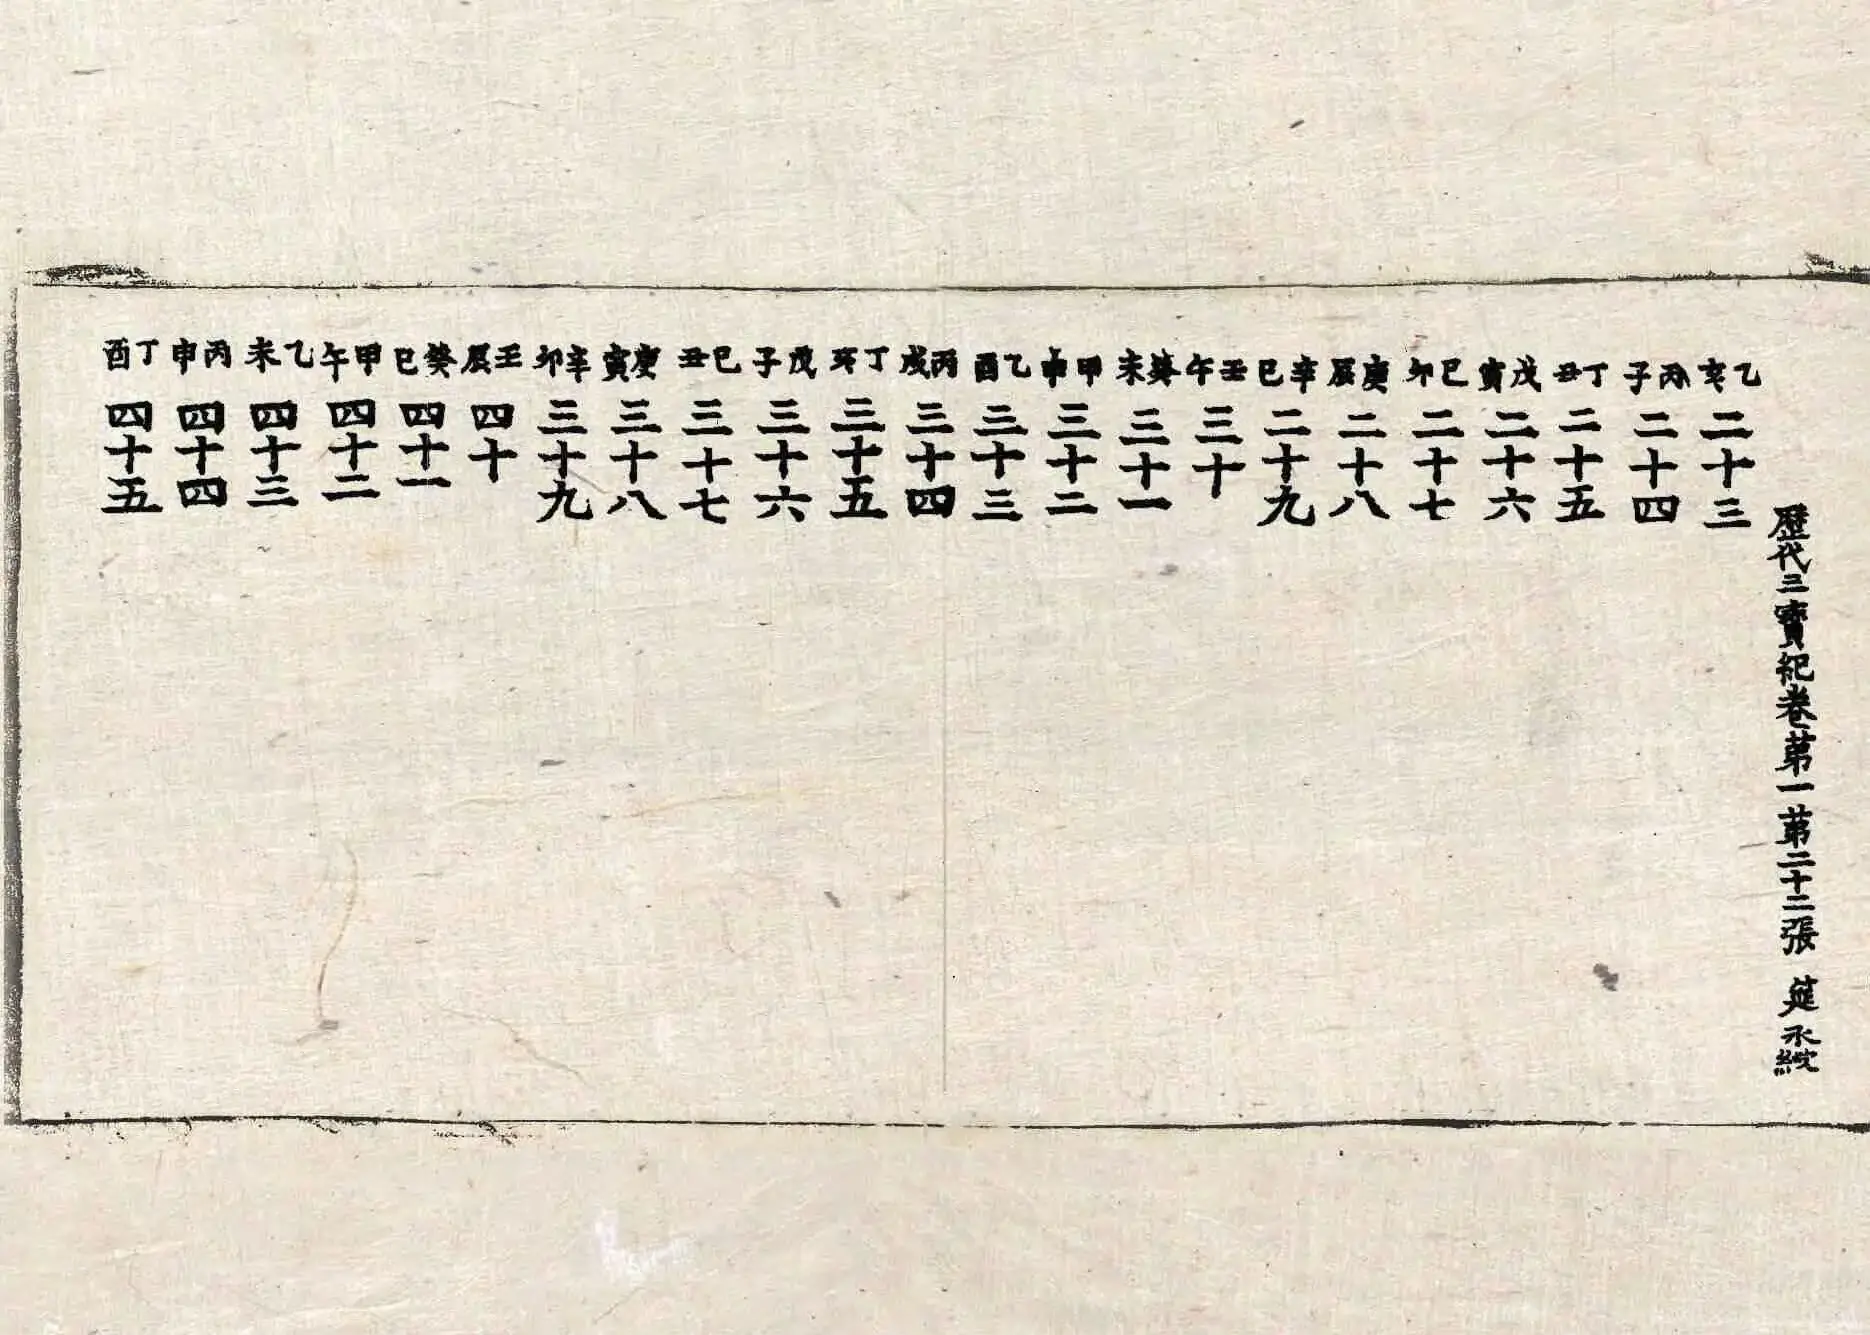 歷代三寶紀卷第一第二十二張
乙亥二十三
丙子二十四
丁丑二十五
戊寅二十六
己卯二十七
庚辰二十八
辛巳二十九
壬午三十
癸未三十一
甲申三十二
乙酉三十三
丙戌三十四
丁亥三十五
戊子三十六
己丑三十七
庚寅三十八
辛卯三十九
壬辰四十
癸巳四十一
甲午四十二
乙未四十三
丙申四十四
丁酉四十五